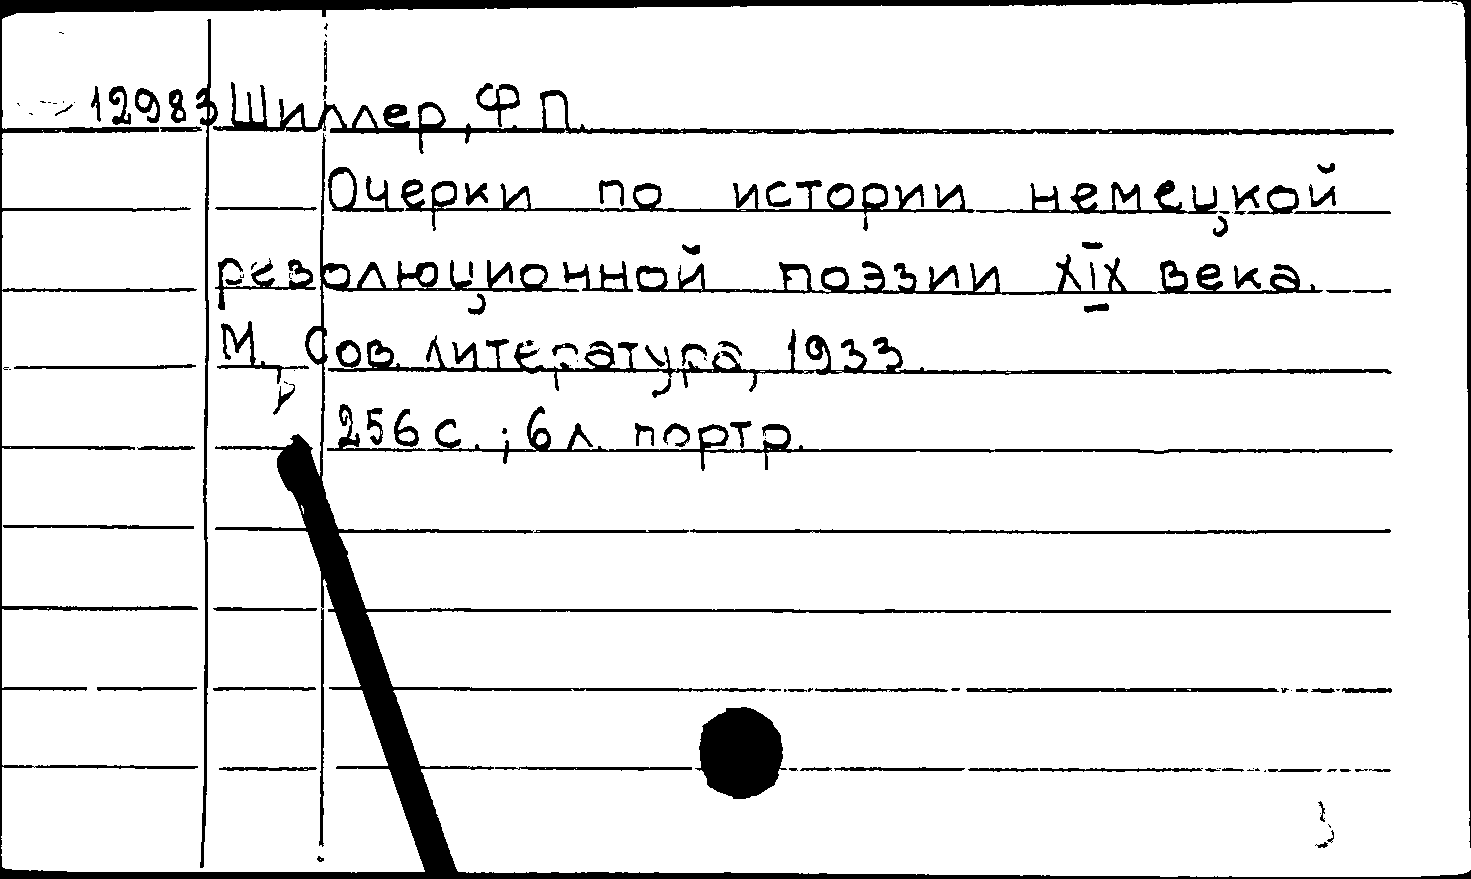 12983 Шиллер, Ф.П.
Очерки по истории немецкой
революционной поэзии XIX века.
М., Сов. литература, 1933.
256 с. ; 6 л. портр.
3